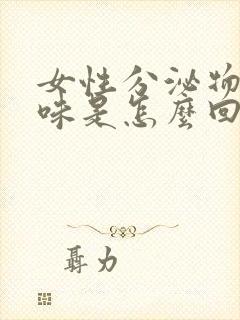 女性分泌物
味是怎麼回
聶力